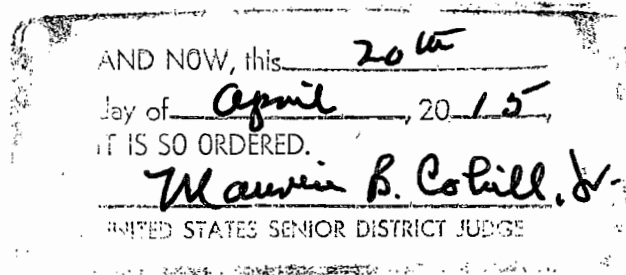 AND NOW, this 20th
day of April, 2015,
IT IS SO ORDERED.
Maurice B. Cohill, Jr.
UNITED STATES SENIOR DISTRICT JUDGE